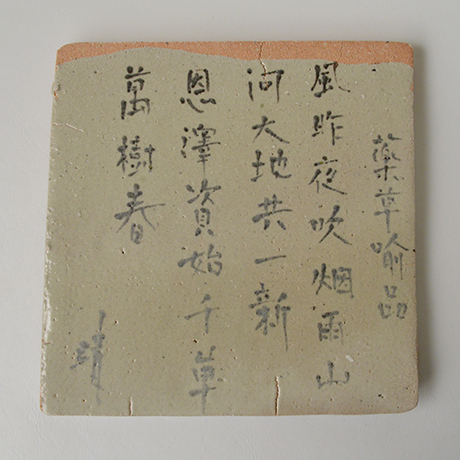 藥草喻品
風昨夜吹烟雨山
河大地共一新
恩澤資始千草
萬樹春